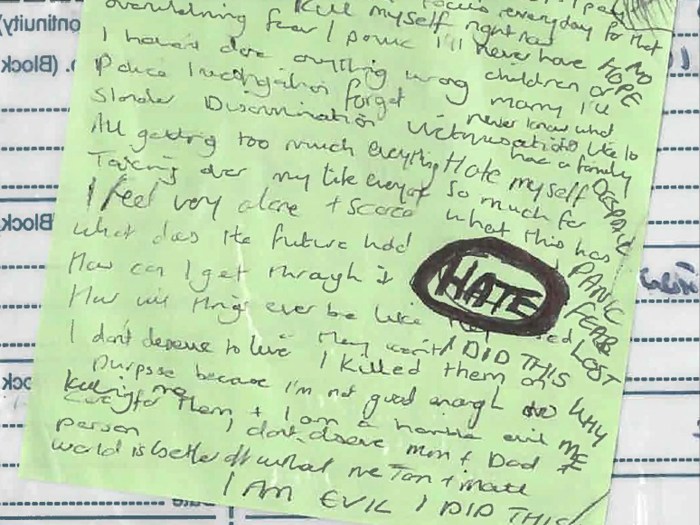 overwhelming fear I panic I'll never have
Kill myself right now
focus everyday for that
NO
HOPE
I haven't done anything wrong
children or
marry I'll
Police Investigation forget
never know what
Slander Discrimination Victimisation
its like to
have a family
All getting too much everything Hate myself
DESPAIR
Taking over my life everyday
so much for
what this has
I feel very alone + scared
What does the future hold
PANIC
How can I get through it
HATE
FEAR
How will things ever be like
LOST
I don't deserve to live
they
I DID THIS
WHY
I killed them on
purpose because I'm not good enough
ME
killing me
care for them + I am a horrible evil
person
I don't deserve mum + Dad +
world is better off without me
I AM EVIL I DID THIS
ontinuity)
o. (Block
Block
ock